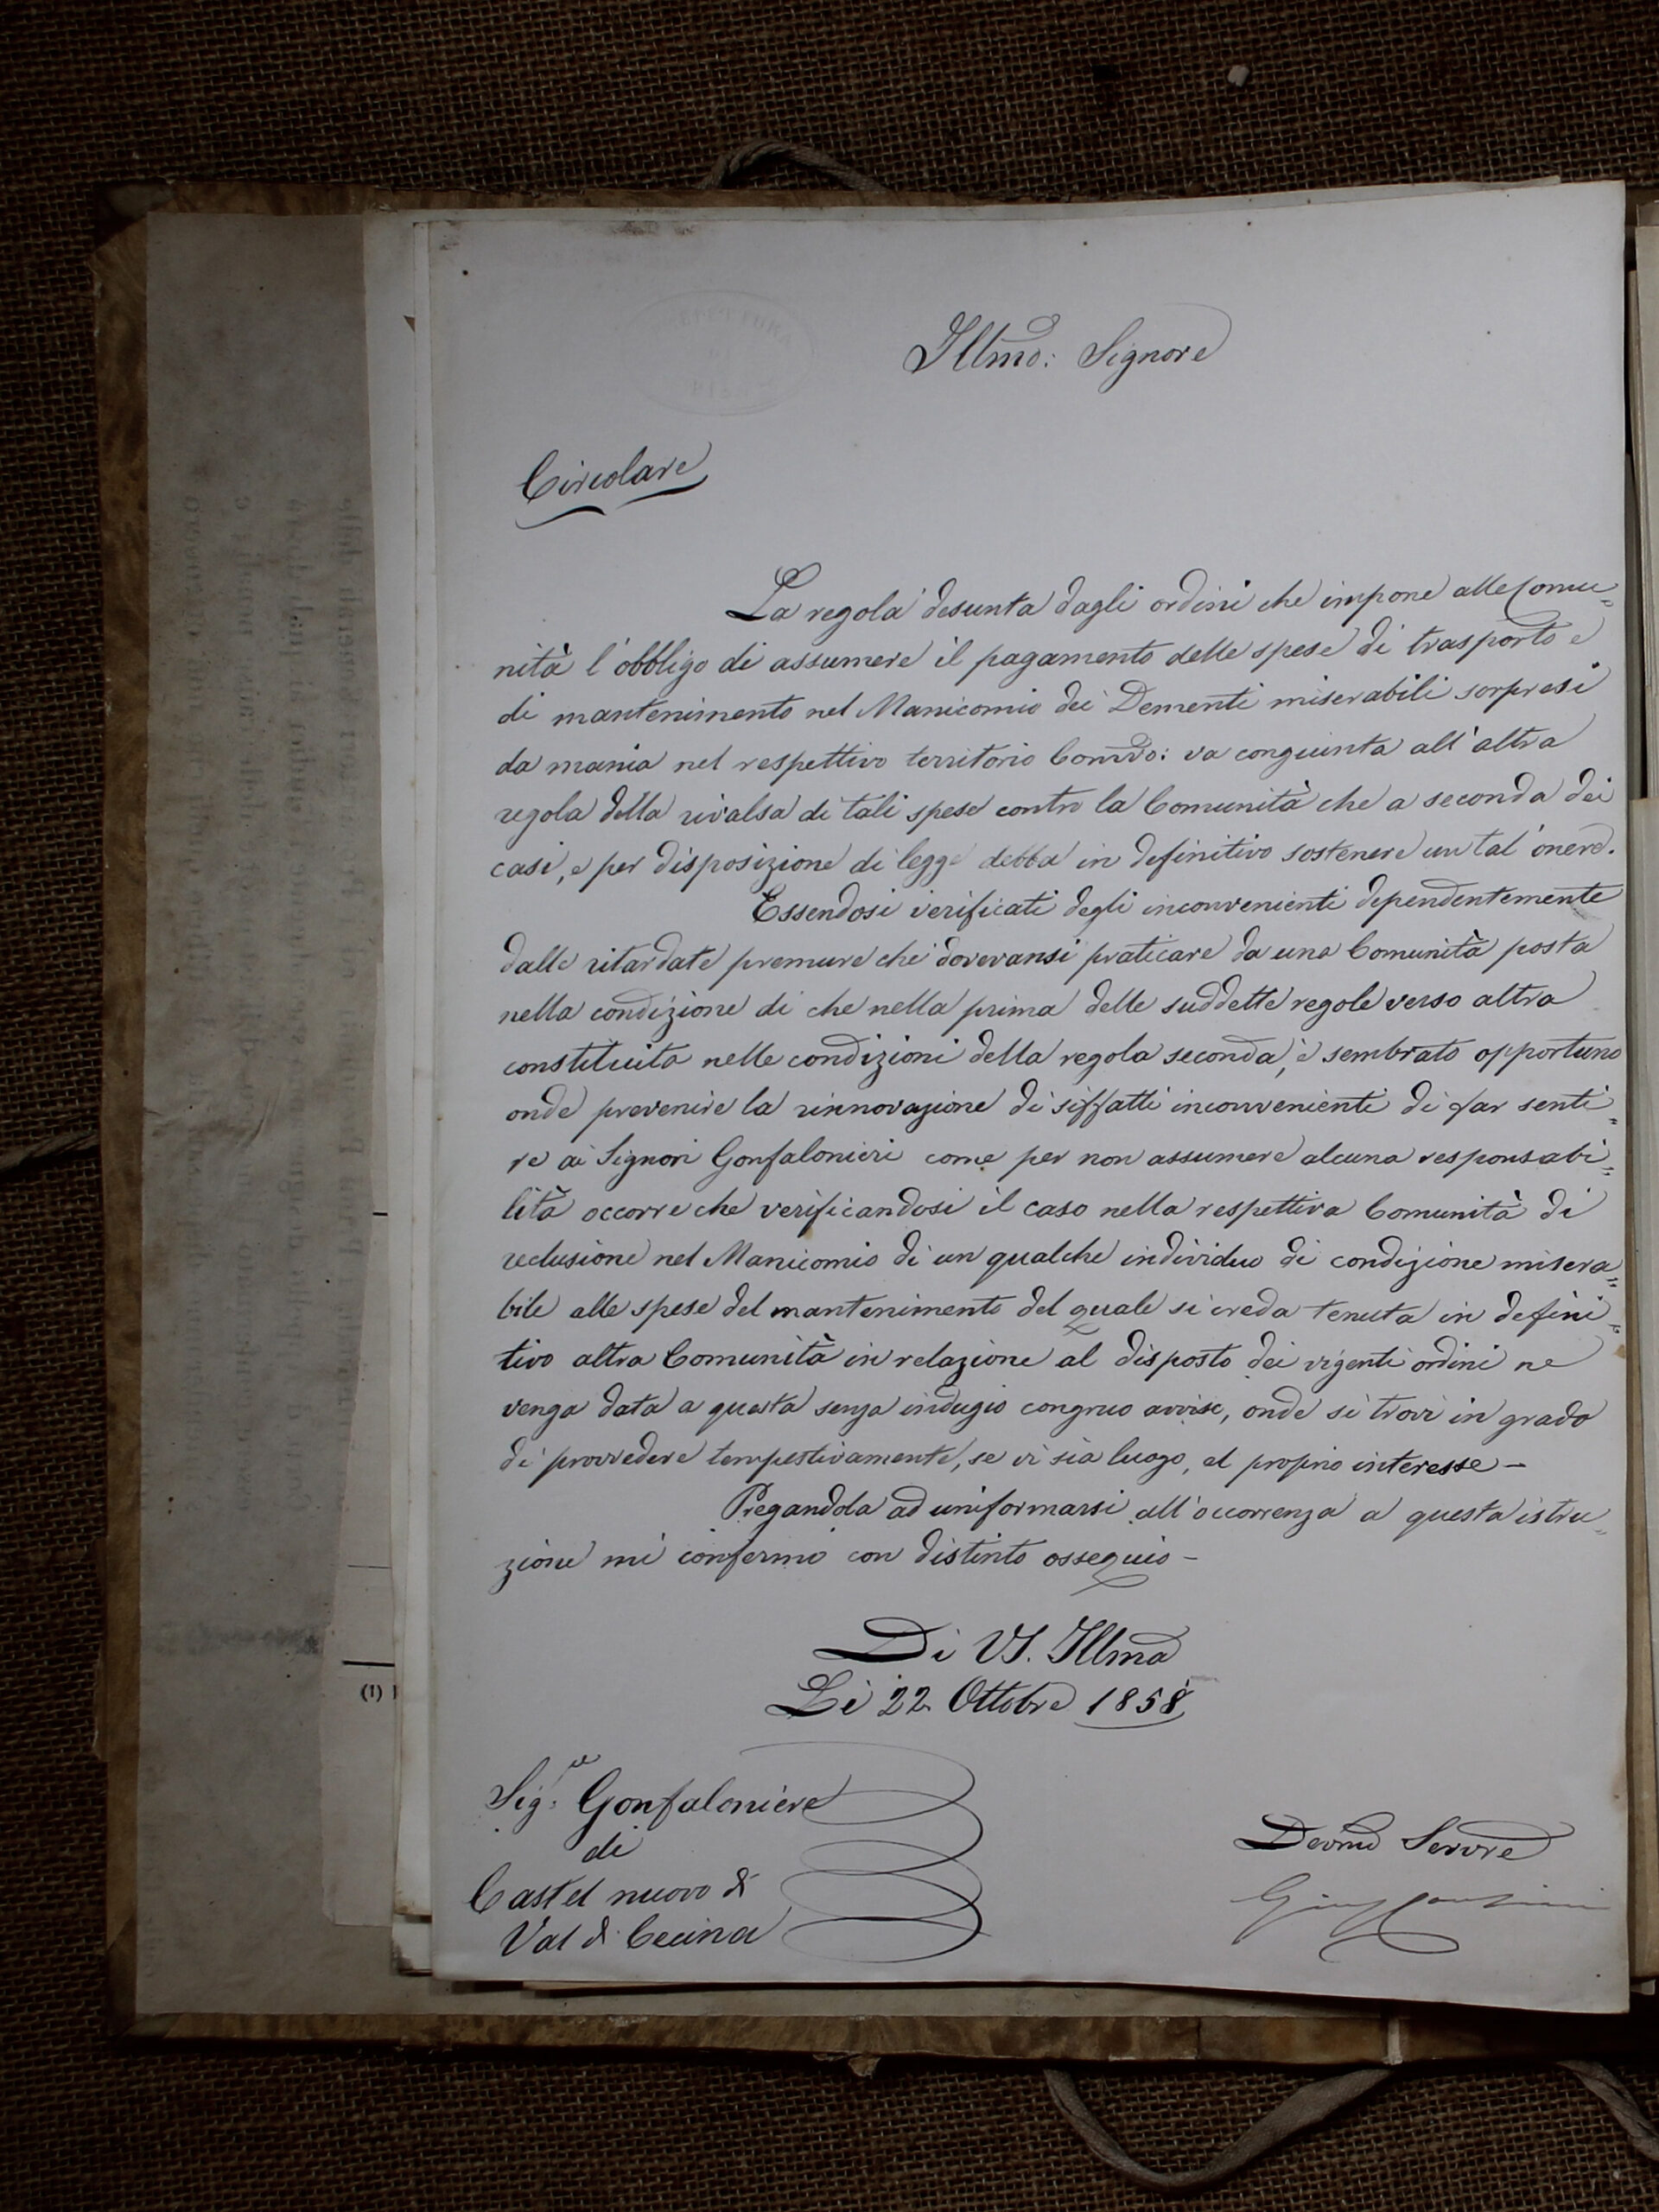 Illmo: Signore
Circolare
La regola desunta dagli ordini che impone alle Comu=
nità l'obbligo di assumere il pagamento delle spese di trasporto e
di mantenimento nel Manicomio dei Dementi miserabili sorpresi
da mania nel respettivo territorio Comvo: va congiunta all'altra
regola della rivalsa di tali spese contro la Comunità che a seconda dei
casi, e per disposizione di legge debba in definitivo sostenere un tal'onere.
Essendosi verificati degli inconvenienti dependentemente
dalle ritardate premure che dovevansi praticare da una Comunità posta
nella condizione di che nella prima delle suddette regole verso altra
constituita nelle condizioni della regola seconda, è sembrato opportuno
onde prevenire la rinnovazione di siffatti inconvenienti di far senti=
re ai Signori Gonfalonieri come per non assumere alcuna responsabi=
lità occorre che verificandosi il caso nella respettiva Comunità di
reclusione nel Manicomio di un qualche individuo di condizione misera=
bile alle spese del mantenimento del quale si creda tenuta in defini=
tivo altra Comunità in relazione al disposto dei vigenti ordini ne
venga data a questa senza indugio congruo avviso, onde si trovi in grado
di provvedere tempestivamente, se vi sia luogo, al proprio interesse –
Pregandola ad uniformarsi all'occorrenza a questa istru=
zione mi confermo con distinto ossequio –
Di VS. Illma
Li 22 Ottobre 1858
Sigre Gonfaloniere
di
Castel nuovo di
Val di Cecina
Devmo Servre
(1)